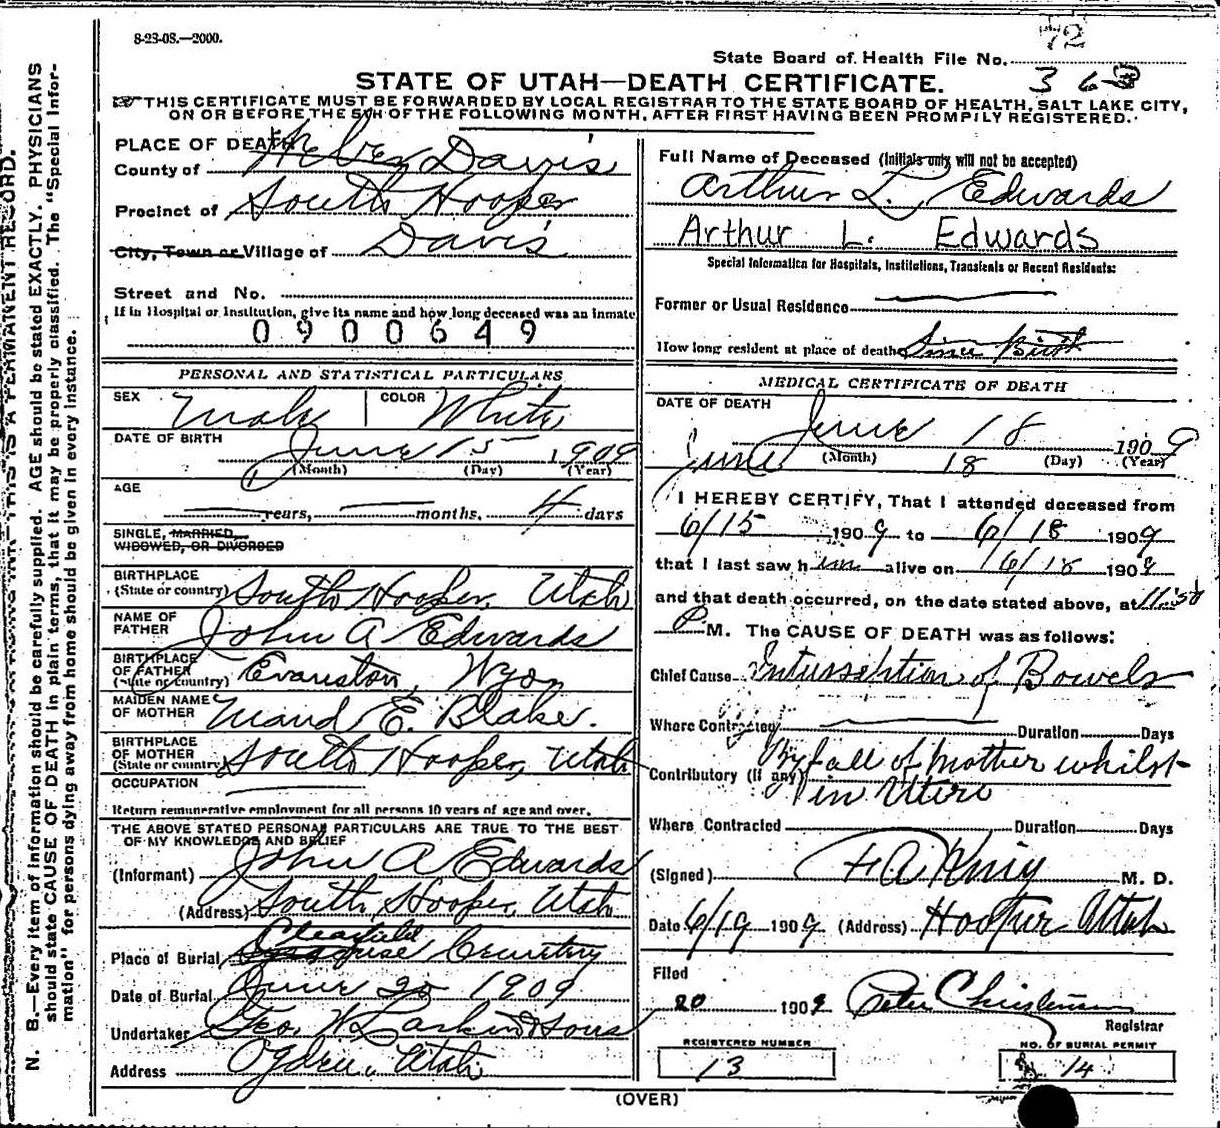 8-23-08.—2000.
72
State Board of Health File No.
3 6
STATE OF UTAH—DEATH CERTIFICATE.
THIS CERTIFICATE MUST BE FORWARDED BY LOCAL REGISTRAR TO THE STATE BOARD OF HEALTH, SALT LAKE CITY,
ON OR BEFORE THE 5TH OF THE FOLLOWING MONTH, AFTER FIRST HAVING BEEN PROMPTLY REGISTERED.
N. B.—Every item of information should be carefully supplied. AGE should be stated EXACTLY. PHYSICIANS
should state CAUSE OF DEATH in plain terms, that it may be properly classified. The "Special Infor-
mation" for persons dying away from home should be given in every instance.
PLACE OF DEATH
County of Weber Davis
Precinct of South Hooper
City, Town or Village of Davis
Street and No.
If in Hospital or Institution, give its name and how long deceased was an inmate
0900649
PERSONAL AND STATISTICAL PARTICULARS
SEX Male COLOR White
DATE OF BIRTH June 15 1909
(Month) (Day) (Year)
AGE
years, months, 4 days
SINGLE, MARRIED,
WIDOWED, OR DIVORCED
BIRTHPLACE
(State or country) South Hooper, Utah
NAME OF
FATHER John A Edwards
BIRTHPLACE
OF FATHER
(State or country) Evanston, Wyo
MAIDEN NAME
OF MOTHER Maud E. Blake.
BIRTHPLACE
OF MOTHER
(State or country) South Hooper, Utah
OCCUPATION
Return remunerative employment for all persons 10 years of age and over.
THE ABOVE STATED PERSONAL PARTICULARS ARE TRUE TO THE BEST
OF MY KNOWLEDGE AND BELIEF
(Informant) John A Edwards
(Address) South Hooper, Utah
Clearfield
Place of Burial Cemetery
Date of Burial June 20 1909
Undertaker Geo. W Larkin & Sons
Address Ogden, Utah
Full Name of Deceased (Initials only will not be accepted)
Arthur L. Edwards
Arthur L. Edwards
Special Information for Hospitals, Institutions, Transients or Recent Residents:
Former or Usual Residence
How long resident at place of death Since Birth
MEDICAL CERTIFICATE OF DEATH
DATE OF DEATH
June 18 1909
June (Month) 18 (Day) (Year)
I HEREBY CERTIFY, That I attended deceased from
6/15 1909 to 6/18 1909
that I last saw him alive on 6/18 1909
and that death occurred, on the date stated above, at 11:50
P M. The CAUSE OF DEATH was as follows:
Chief Cause Intusseption of Bowels
Where Contracted Duration Days
Contributory (if any) By fall of mother whilst
in Utero
Where Contracted Duration Days
(Signed) M. D.
Date 6/19 1909 (Address) Hooper Utah
Filed
20 1909 Peter Christensen
Registrar
REGISTERED NUMBER
13
NO. OF BURIAL PERMIT
14
(OVER)